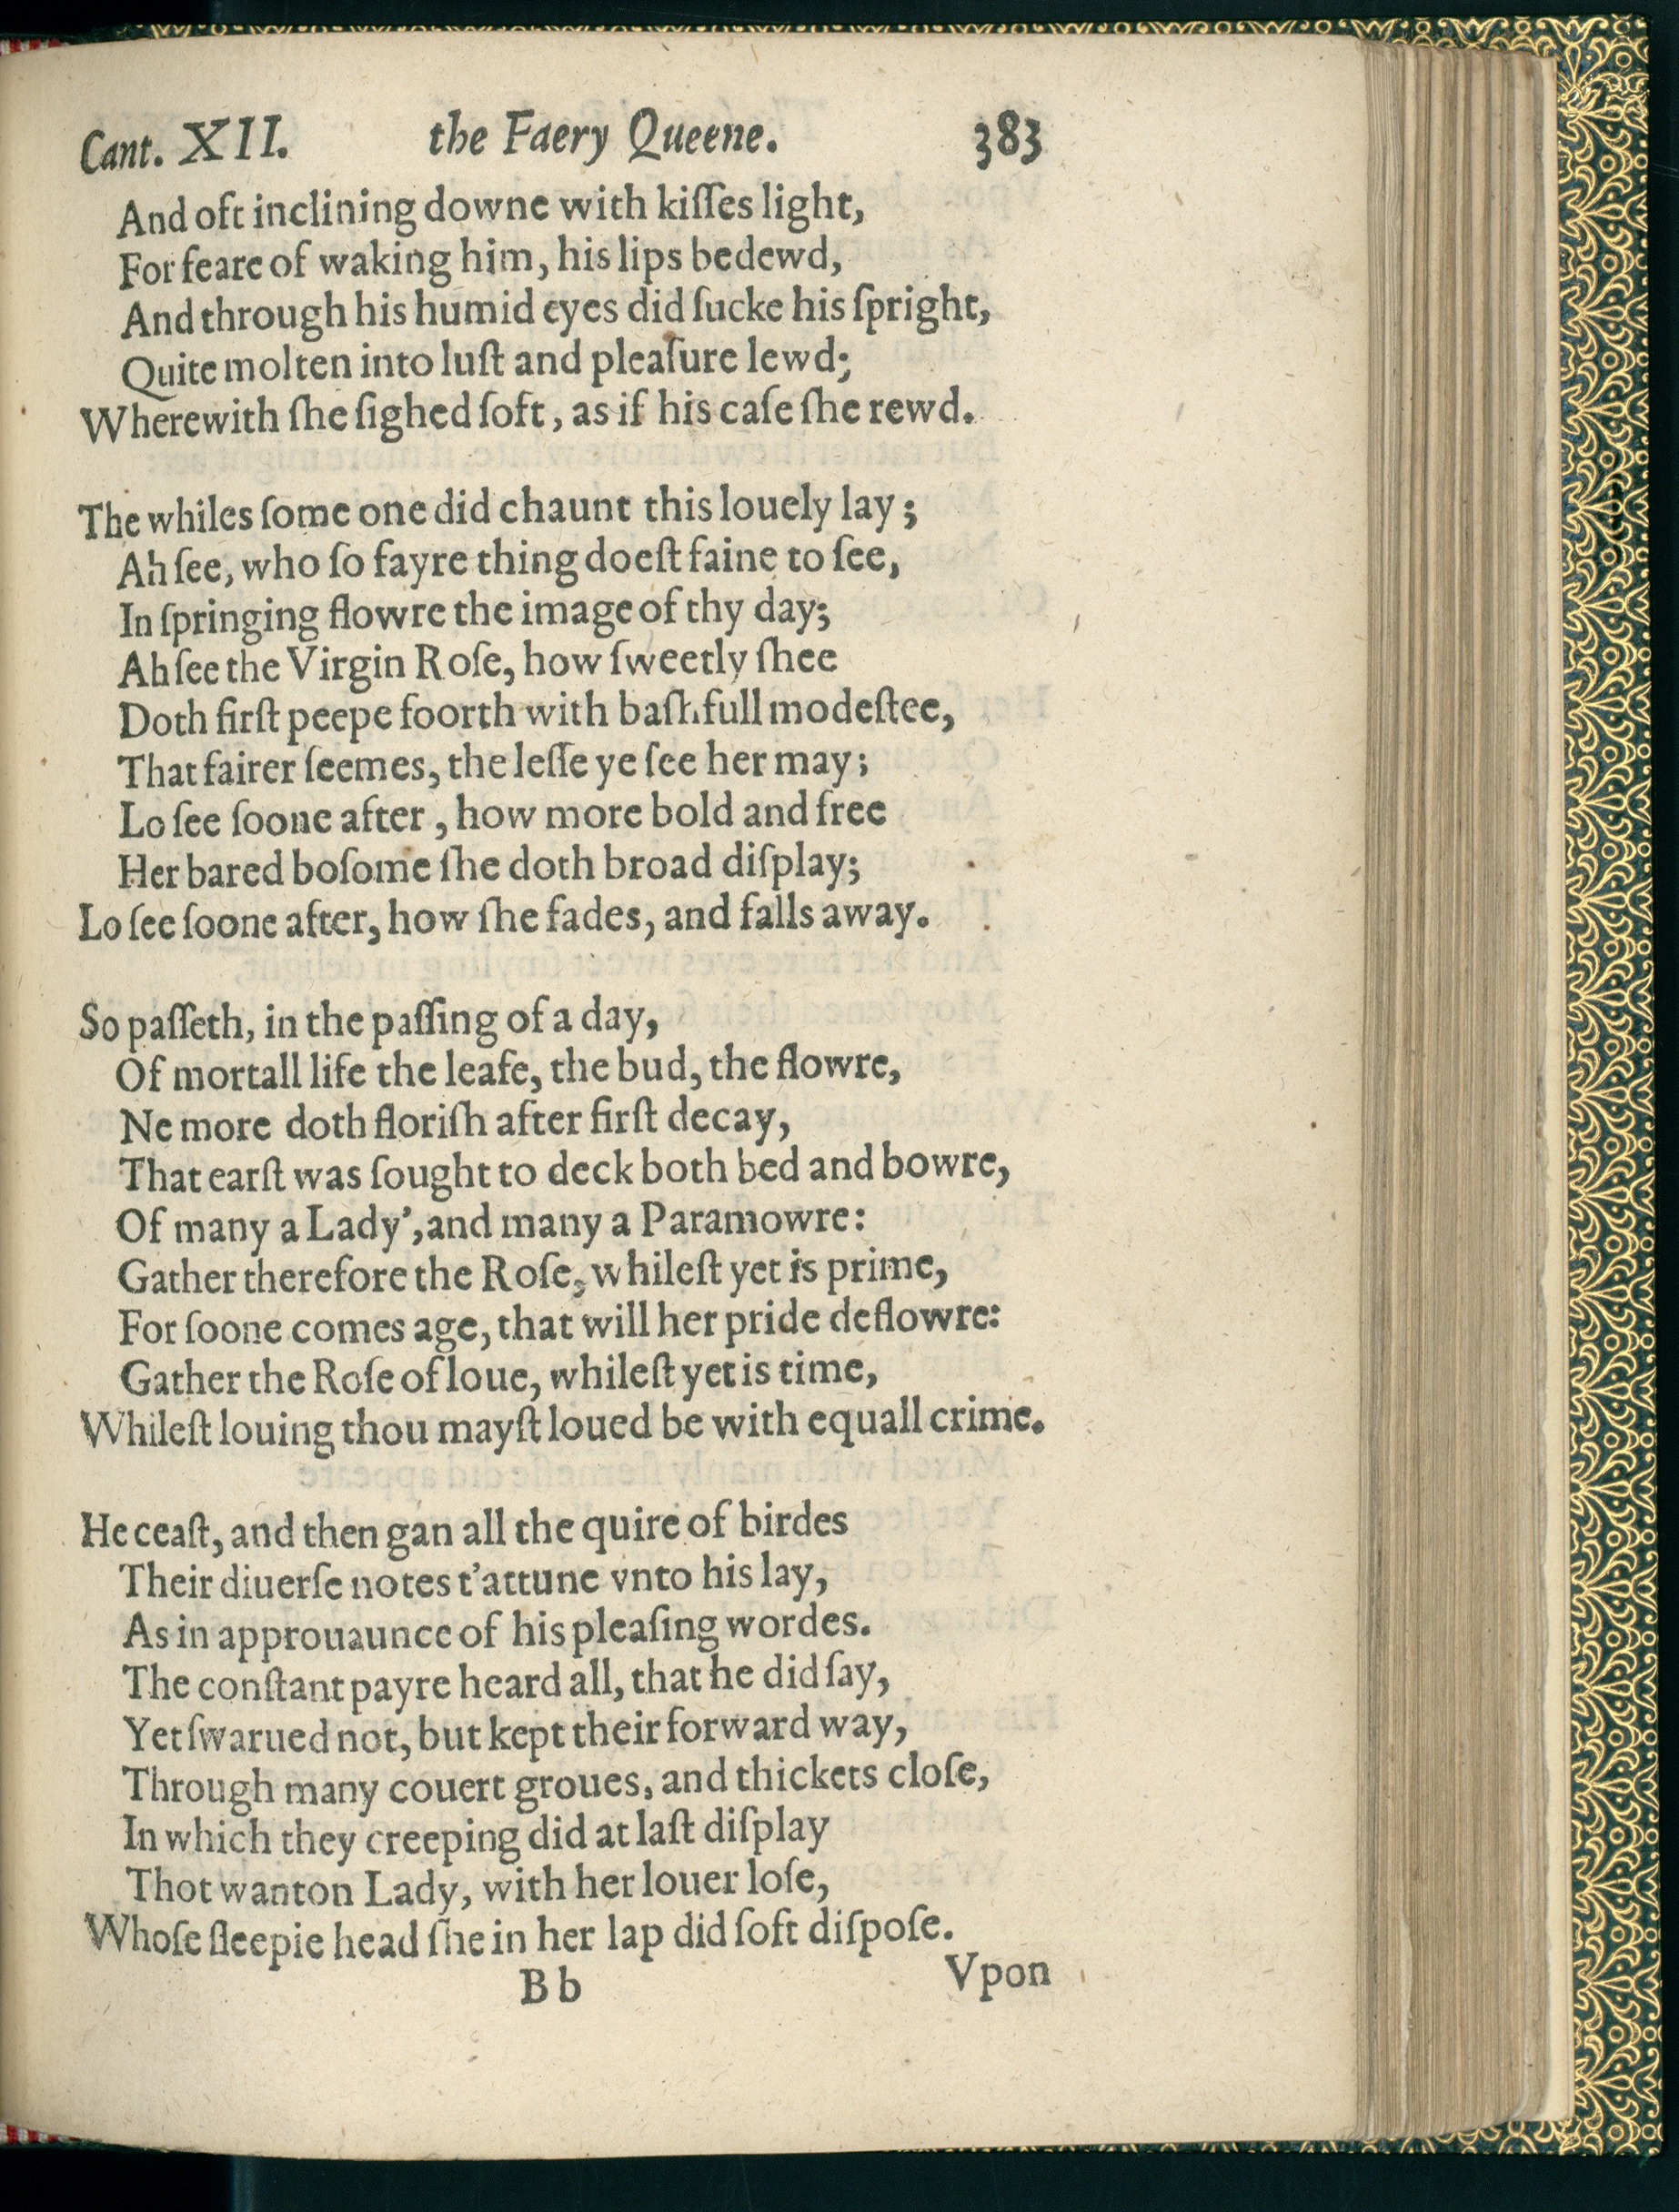 Cant. XII. the Faery Queene. 383
And oft inclining downe with kiſſes light,
For feare of waking him, his lips bedewd,
And through his humid eyes did ſucke his ſpright,
Quite molten into luſt and pleaſure lewd;
Wherewith ſhe ſighed ſoft, as if his caſe ſhe rewd.
The whiles ſome one did chaunt this louely lay;
Ah ſee, who ſo fayre thing doeſt faine to ſee,
In ſpringing flowre the image of thy day;
Ah ſee the Virgin Roſe, how ſweetly ſhee
Doth firſt peepe foorth with baſhfull modeſtee,
That fairer ſeemes, the leſſe ye ſee her may;
Lo ſee ſoone after, how more bold and free
Her bared boſome ſhe doth broad diſplay;
Lo ſee ſoone after, how ſhe fades, and falls away.
So paſſeth, in the paſſing of a day,
Of mortall life the leafe, the bud, the flowre,
Ne more doth floriſh after firſt decay,
That earſt was ſought to deck both bed and bowre,
Of many a Lady', and many a Paramowre:
Gather therefore the Roſe, whileſt yet is prime,
For ſoone comes age, that will her pride deflowre:
Gather the Roſe of loue, whileſt yet is time,
Whileſt louing thou mayſt loued be with equall crime.
He ceaſt, and then gan all the quire of birdes
Their diuerſe notes t'attune vnto his lay,
As in approuaunce of his pleaſing wordes.
The conſtant payre heard all, that he did ſay,
Yet ſwarued not, but kept their forward way,
Through many couert groues, and thickets cloſe,
In which they creeping did at laſt diſplay
Thot wanton Lady, with her louer loſe,
Whoſe ſleepie head ſhe in her lap did ſoft diſpoſe.
B b Vpon